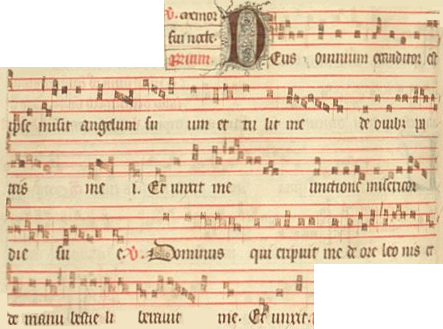 Deus omnium exauditor est
ipse misit angelum su um et tu lit me de ovibz pa
tris me i. Et unxit me unctione misericor
die su e. V. Dominus qui eripuit me de ore leo nis et
de manu bestie li beravit me. Et unxit.